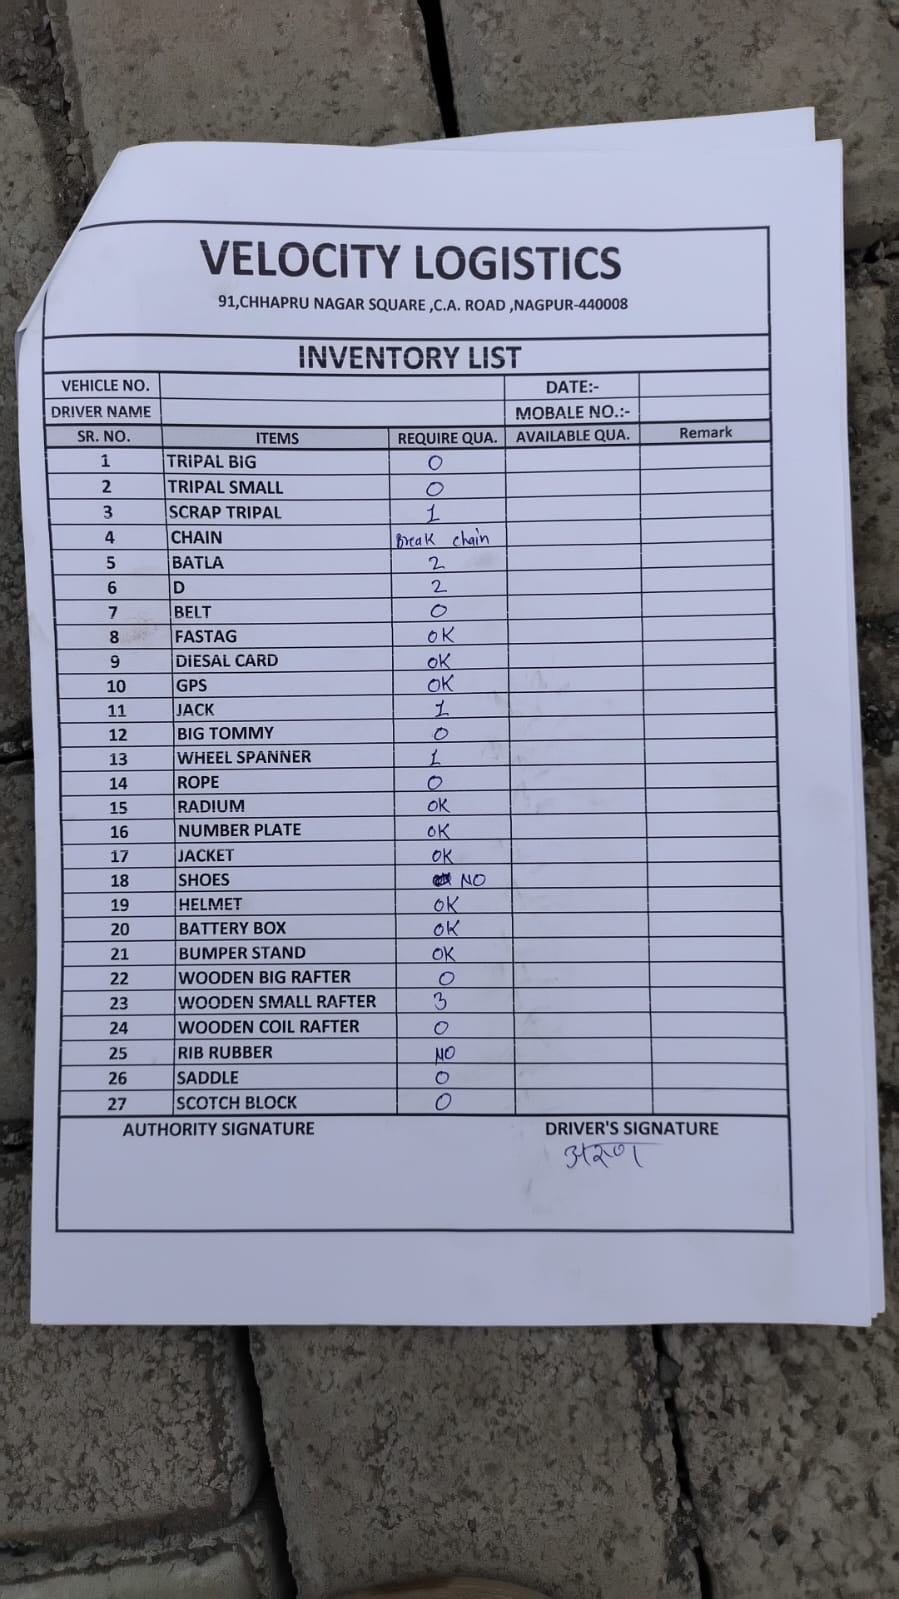 VELOCITY LOGISTICS
91,CHHAPRU NAGAR SQUARE ,C.A. ROAD ,NAGPUR-440008
INVENTORY LIST
VEHICLE NO. DATE:-
DRIVER NAME MOBALE NO.:-
SR. NO. ITEMS REQUIRE QUA. AVAILABLE QUA. Remark
1 TRIPAL BIG 0
2 TRIPAL SMALL 0
3 SCRAP TRIPAL 1
4 CHAIN Break chain
5 BATLA 2
6 D 2
7 BELT 0
8 FASTAG OK
9 DIESAL CARD OK
10 GPS OK
11 JACK 1
12 BIG TOMMY 0
13 WHEEL SPANNER 1
14 ROPE 0
15 RADIUM OK
16 NUMBER PLATE OK
17 JACKET OK
18 SHOES NO
19 HELMET OK
20 BATTERY BOX OK
21 BUMPER STAND OK
22 WOODEN BIG RAFTER 0
23 WOODEN SMALL RAFTER 3
24 WOODEN COIL RAFTER 0
25 RIB RUBBER NO
26 SADDLE 0
27 SCOTCH BLOCK 0
AUTHORITY SIGNATURE DRIVER'S SIGNATURE